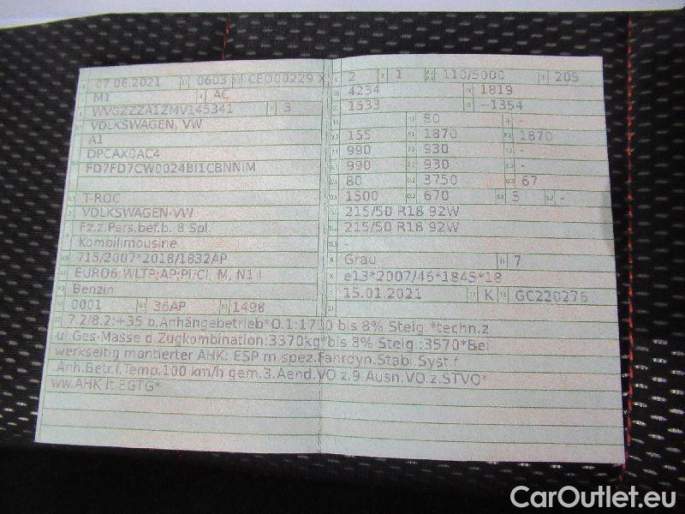 07.06.2021 0603 2 1 110/5000 205
M1 AC 4234 1819
3 1533 -1354
VOLKSWAGEN, VW 80 -
A1 155 1870 1870
DPCAX0AC4 990 930 -
990 930 -
80 3750 67
T-ROC 1500 670 5 -
VOLKSWAGEN-VW 215/50 R18 92W
Fz.z.Pers.bef.b. 8 Spl. 215/50 R18 92W
Kombilimousine -
715/2007*2018/1832AP Grau 7
EURO6;WLTP;AP;PI/CI; M, N1 I e13*2007/46*1845*18
Benzin 15.01.2021 K GC220276
0001 36AP 1498
7.2/8.2:+35 b.Anhängebetrieb*O.1:1700 bis 8% Steig.*techn.z
ul.Ges-Masse d.Zugkombination:3370kg*bis 8% Steig.:3570*Bei
werkseitig montierter AHK: ESP m.spez.Fahrdyn.Stabi.Syst.f.
Anh.Betr.f.Temp.100 km/h gem.3.Aend.VO z.9.Ausn.VO.z.STVO*
ww.AHK lt.EGTG*
CarOutlet.eu